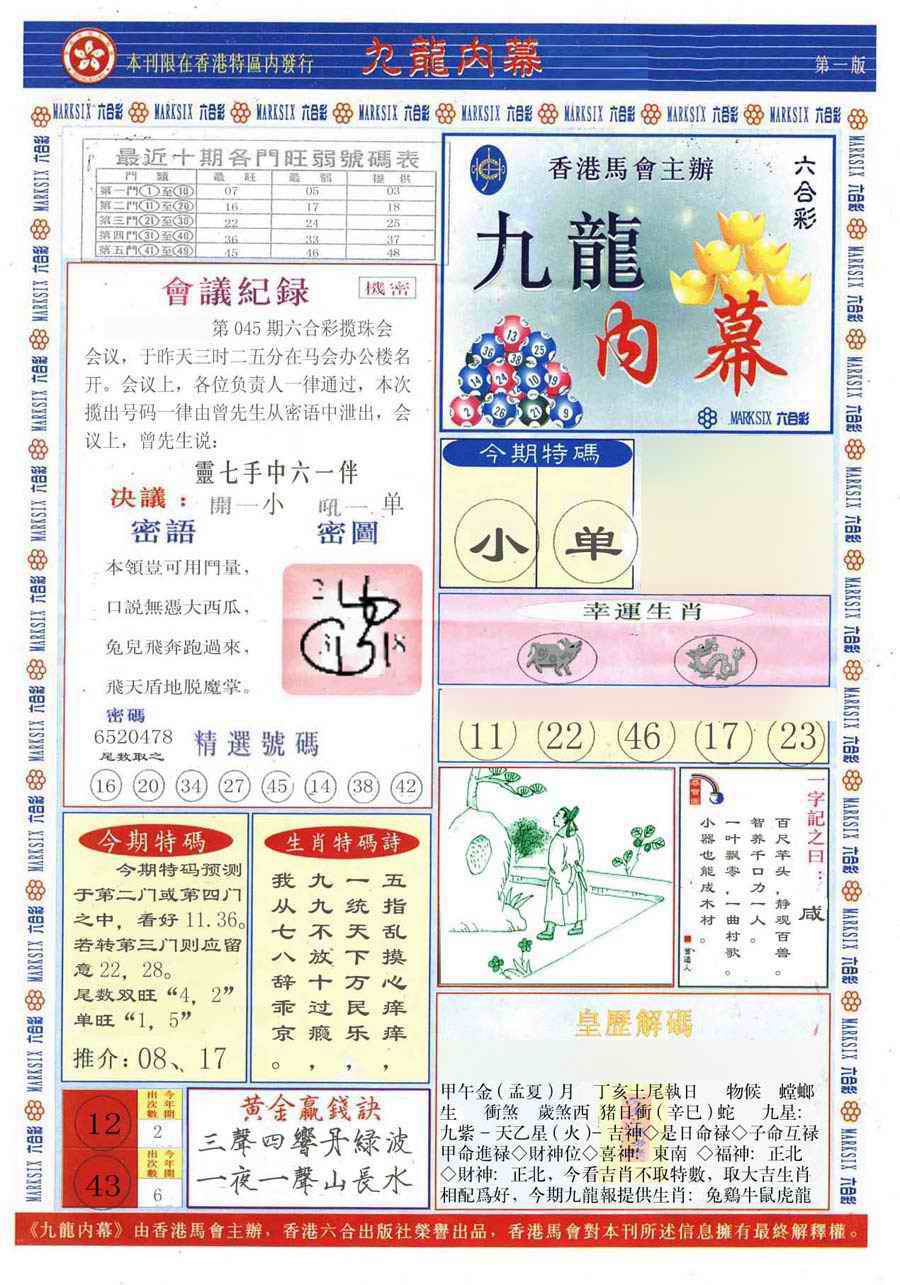 本刊限在香港特區内發行
九龍内幕
第一版
MARKSIX 六合彩
最近十期各門旺弱號碼表
門類 最旺 最弱 提供
第一門①至⑩ 07 05 03
第二門⑪至⑳ 16 17 18
第三門㉑至㉚ 22 24 25
第四門㉛至㊵ 36 33 37
第五門㊶至㊾ 45 46 48
香港馬會主辦
六合彩
九龍
内幕
13
36 38 25
14 24 10 19
2 26 21 9
MARKSIX 六合彩
會議紀録
機密
第 045 期六合彩揽珠会
会议，于昨天三吋二五分在马会办公楼名
开。会议上，各位负责人一律通过，本次
揽出号码一律由曾先生从密语中泄出，会
议上，曾先生说:
靈七手中六一伴
决議： 開一小 吼一单
密語
密圖
本領豈可用鬥量，
口説無憑大西瓜，
兔兒飛奔跑過來，
飛天盾地脱魔掌。
密碼
6520478
尾数取之
精選號碼
16 20 34 27 45 14 38 42
今期特碼
小 单
幸運生肖
11 22 46 17 23
一字記之曰：咸
百尺竿头，静观百兽。
智养千口力一人。
一叶飘零，一曲村歌。
小器也能成木材。
曾道人
今期特碼
今期特码预测
于第二门或第四门
之中，看好 11.36。
若转第三门则应留
意 22，28。
尾数双旺“4，2”
单旺“1，5”
推介：08、17
生肖特碼詩
五指乱摸心痒痒，
一统天下万民乐，
九九不放十过瘾，
我从七八辞乖京。
皇歷解碼
甲午金(孟夏)月 丁亥土尾執日 物候 螳螂
生 衝煞 歲煞西 猪日衝(辛巳)蛇 九星:
九紫－天乙星(火)－吉神◇是日命禄◇子命互禄
甲命進禄◇財神位◇喜神: 東南 ◇福神: 正北
◇財神: 正北，今看吉肖不取特數，取大吉生肖
相配爲好，今期九龍報提供生肖: 兔鷄牛鼠虎龍
12
今年開出次數
2
43
今年開出次數
6
黄金贏錢訣
三聲四響丹綠波
一夜一聲山長水
《九龍内幕》由香港馬會主辦，香港六合出版社榮譽出品，香港馬會對本刊所述信息擁有最終解釋權。